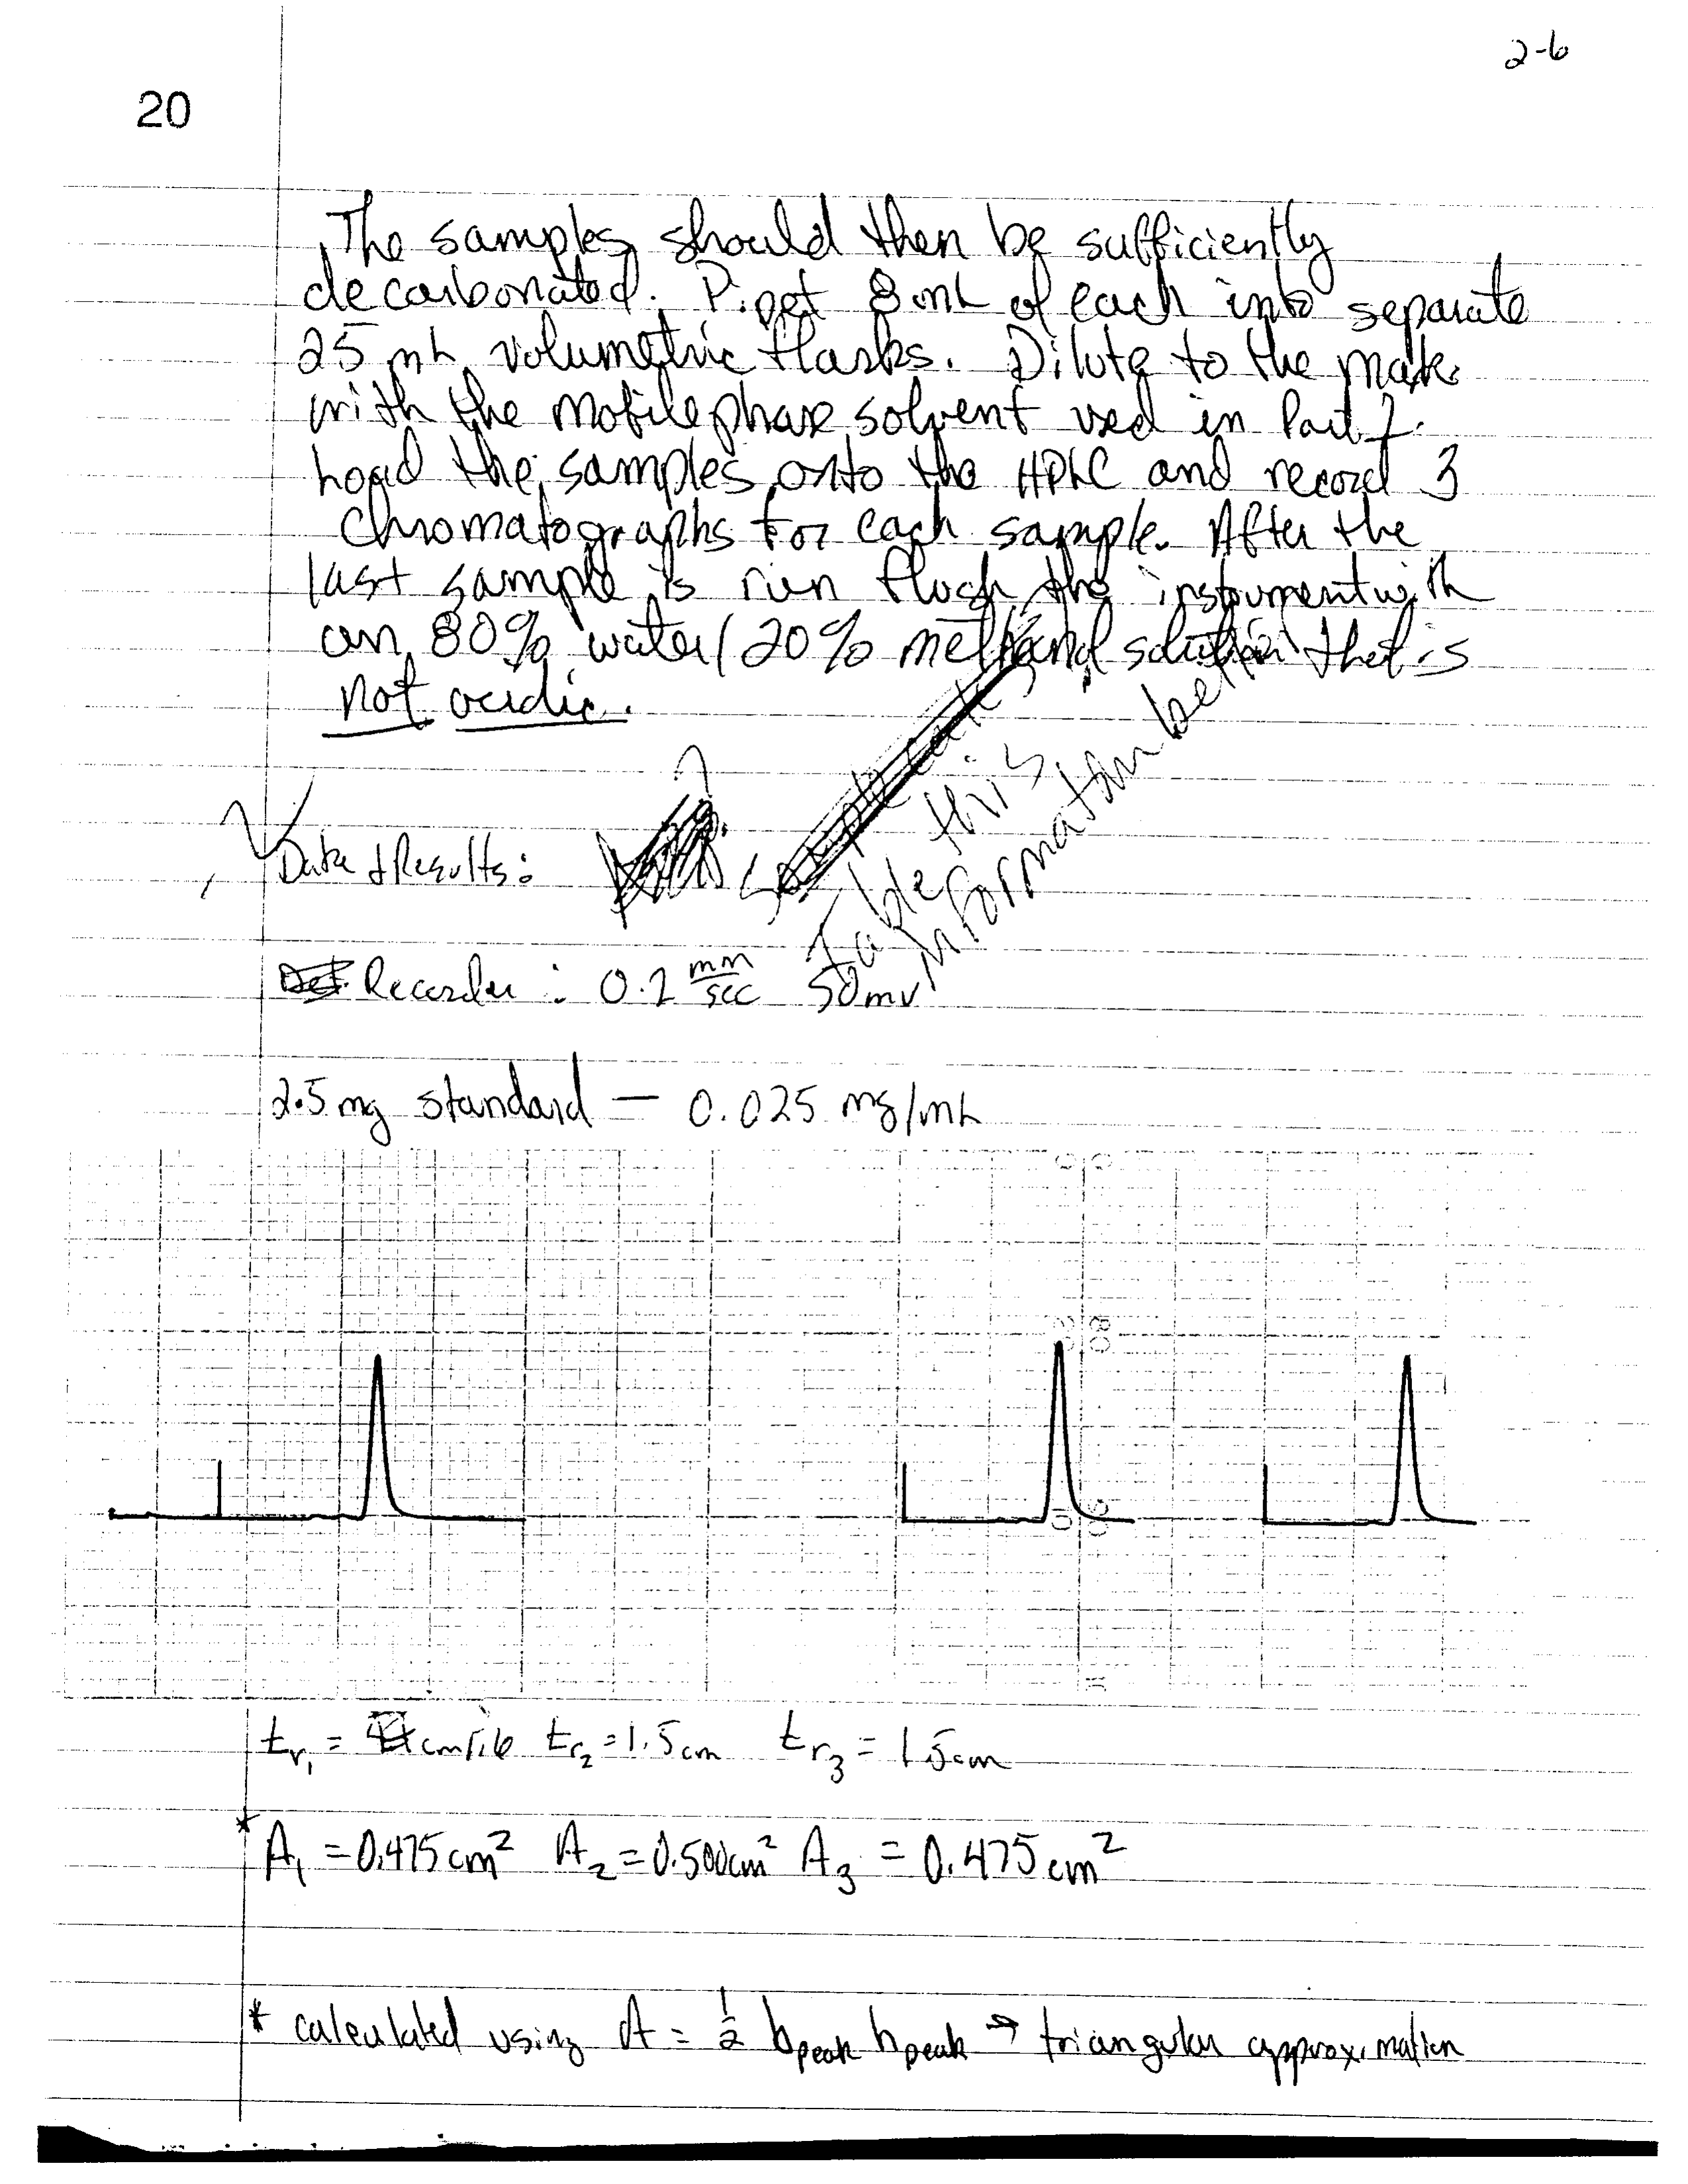 2-6
20
The samples should then be sufficiently
decarbonated. Pipet 8 mL of each into separate
25 mL volumetric flasks. Dilute to the mark
with the mobile phase solvent used in Part
Load the samples onto the HPLC and record 3
chromatographs for each sample. After the
last sample is run flush the instrument with
an 80% water/20% methanol solution that is
not acidic.
Table this
information better
Data & Results:
Recorder : 0.2 mm/sec 50mv
2.5 mg standard — 0.025 mg/mL
tr1 = cm 1.6 tr2 = 1.5 cm tr3 = 1.5 cm
* A1 = 0.475 cm² A2 = 0.500 cm² A3 = 0.475 cm²
* calculated using A = 1/2 bpeak hpeak → triangular approximation